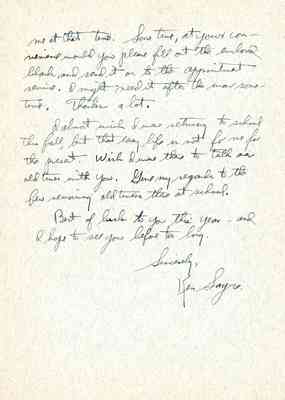 me at that time. Some time, at your con-
venience would you please fill out the enclosed
blank and send it on to the appointment
service. I might need it after the war some-
time. Thanks a lot.
I almost wish I was returning to school
this fall, but that easy life is not for me for
the present - Wish I was there to talk over
old times with you. Give my regards to the
few remaining old timers there at school.
Best of luck to you this year - and
I hope to see you before too long.
Sincerely,
Ken Sayre